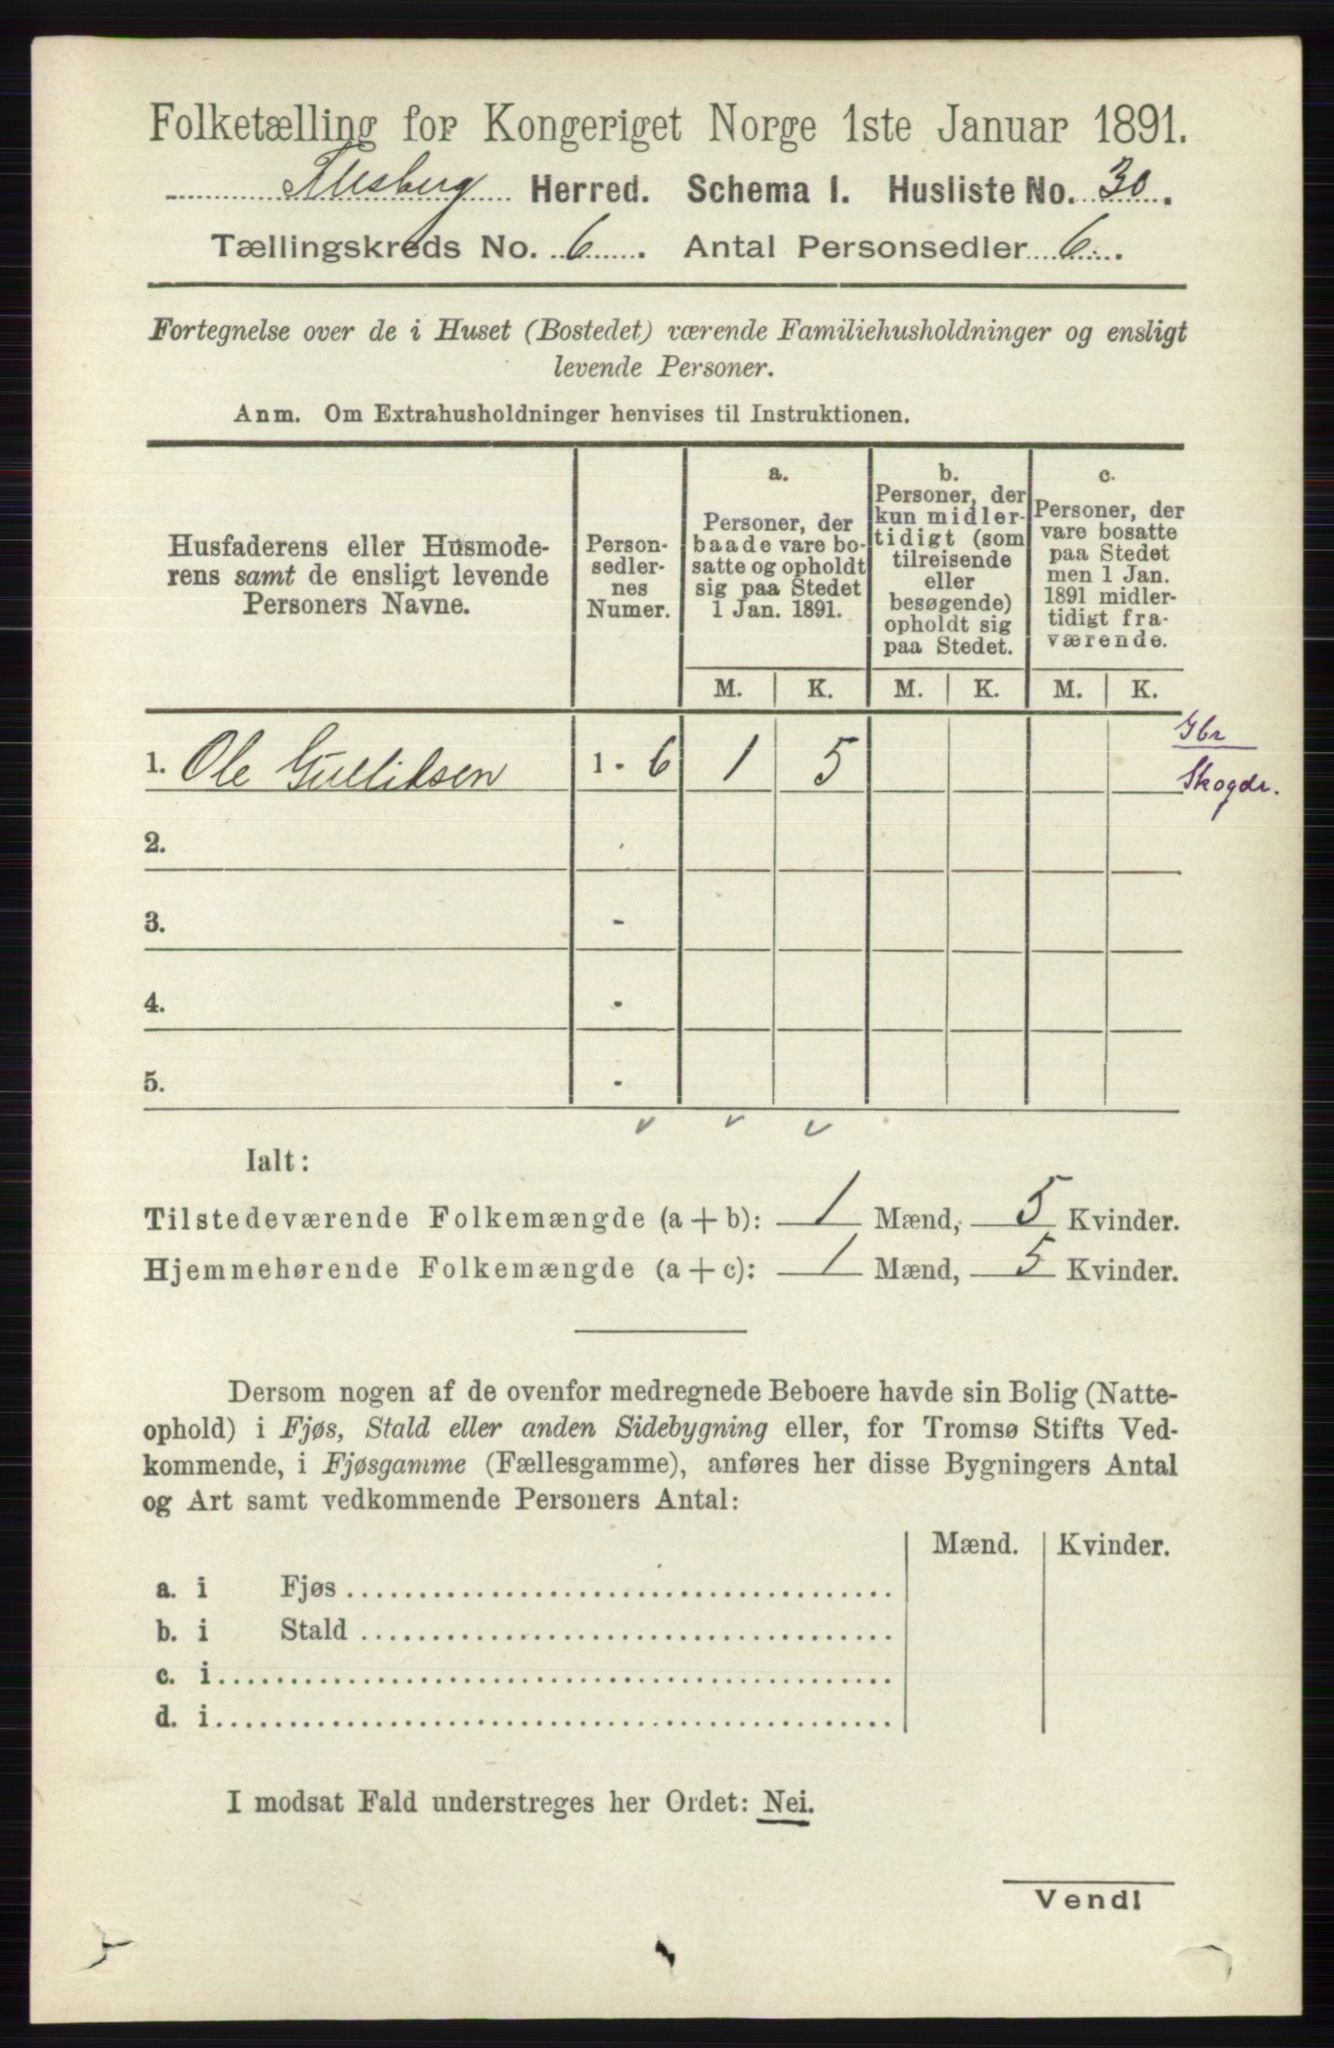 Folketælling for Kongeriget Norge 1ste Januar 1891.
Flesberg Herred. Schema I. Husliste No. 30.
Tællingskreds No. 6. Antal Personsedler 6.
Fortegnelse over de i Huset (Bostedet) værende Familiehusholdninger og ensligt
levende Personer.
Anm. Om Extrahusholdninger henvises til Instruktionen.
Husfaderens eller Husmode-
rens samt de ensligt levende
Personers Navne.
Person-
sedler-
nes
Numer.
a.
Personer, der
baade vare bo-
satte og opholdt
sig paa Stedet
1 Jan. 1891.
b.
Personer, der
kun midler-
tidigt (som
tilreisende
eller
besøgende)
opholdt sig
paa Stedet.
c.
Personer, der
vare bosatte
paa Stedet
men 1 Jan.
1891 midler-
tidigt fra-
værende.
M. K. M. K. M. K.
1. Ole Gulliksen 1 - 6 1 5
Gbr
Skogdr.
2. -
3. -
4. -
5. -
Ialt:
Tilstedeværende Folkemængde (a + b): 1 Mænd, 5 Kvinder.
Hjemmehørende Folkemængde (a + c): 1 Mænd, 5 Kvinder.
Dersom nogen af de ovenfor medregnede Beboere havde sin Bolig (Natte-
ophold) i Fjøs, Stald eller anden Sidebygning eller, for Tromsø Stifts Ved-
kommende, i Fjøsgamme (Fællesgamme), anføres her disse Bygningers Antal
og Art samt vedkommende Personers Antal:
Mænd. Kvinder.
a. i Fjøs
b. i Stald
c. i
d. i
I modsat Fald understreges her Ordet: Nei.
Vend!